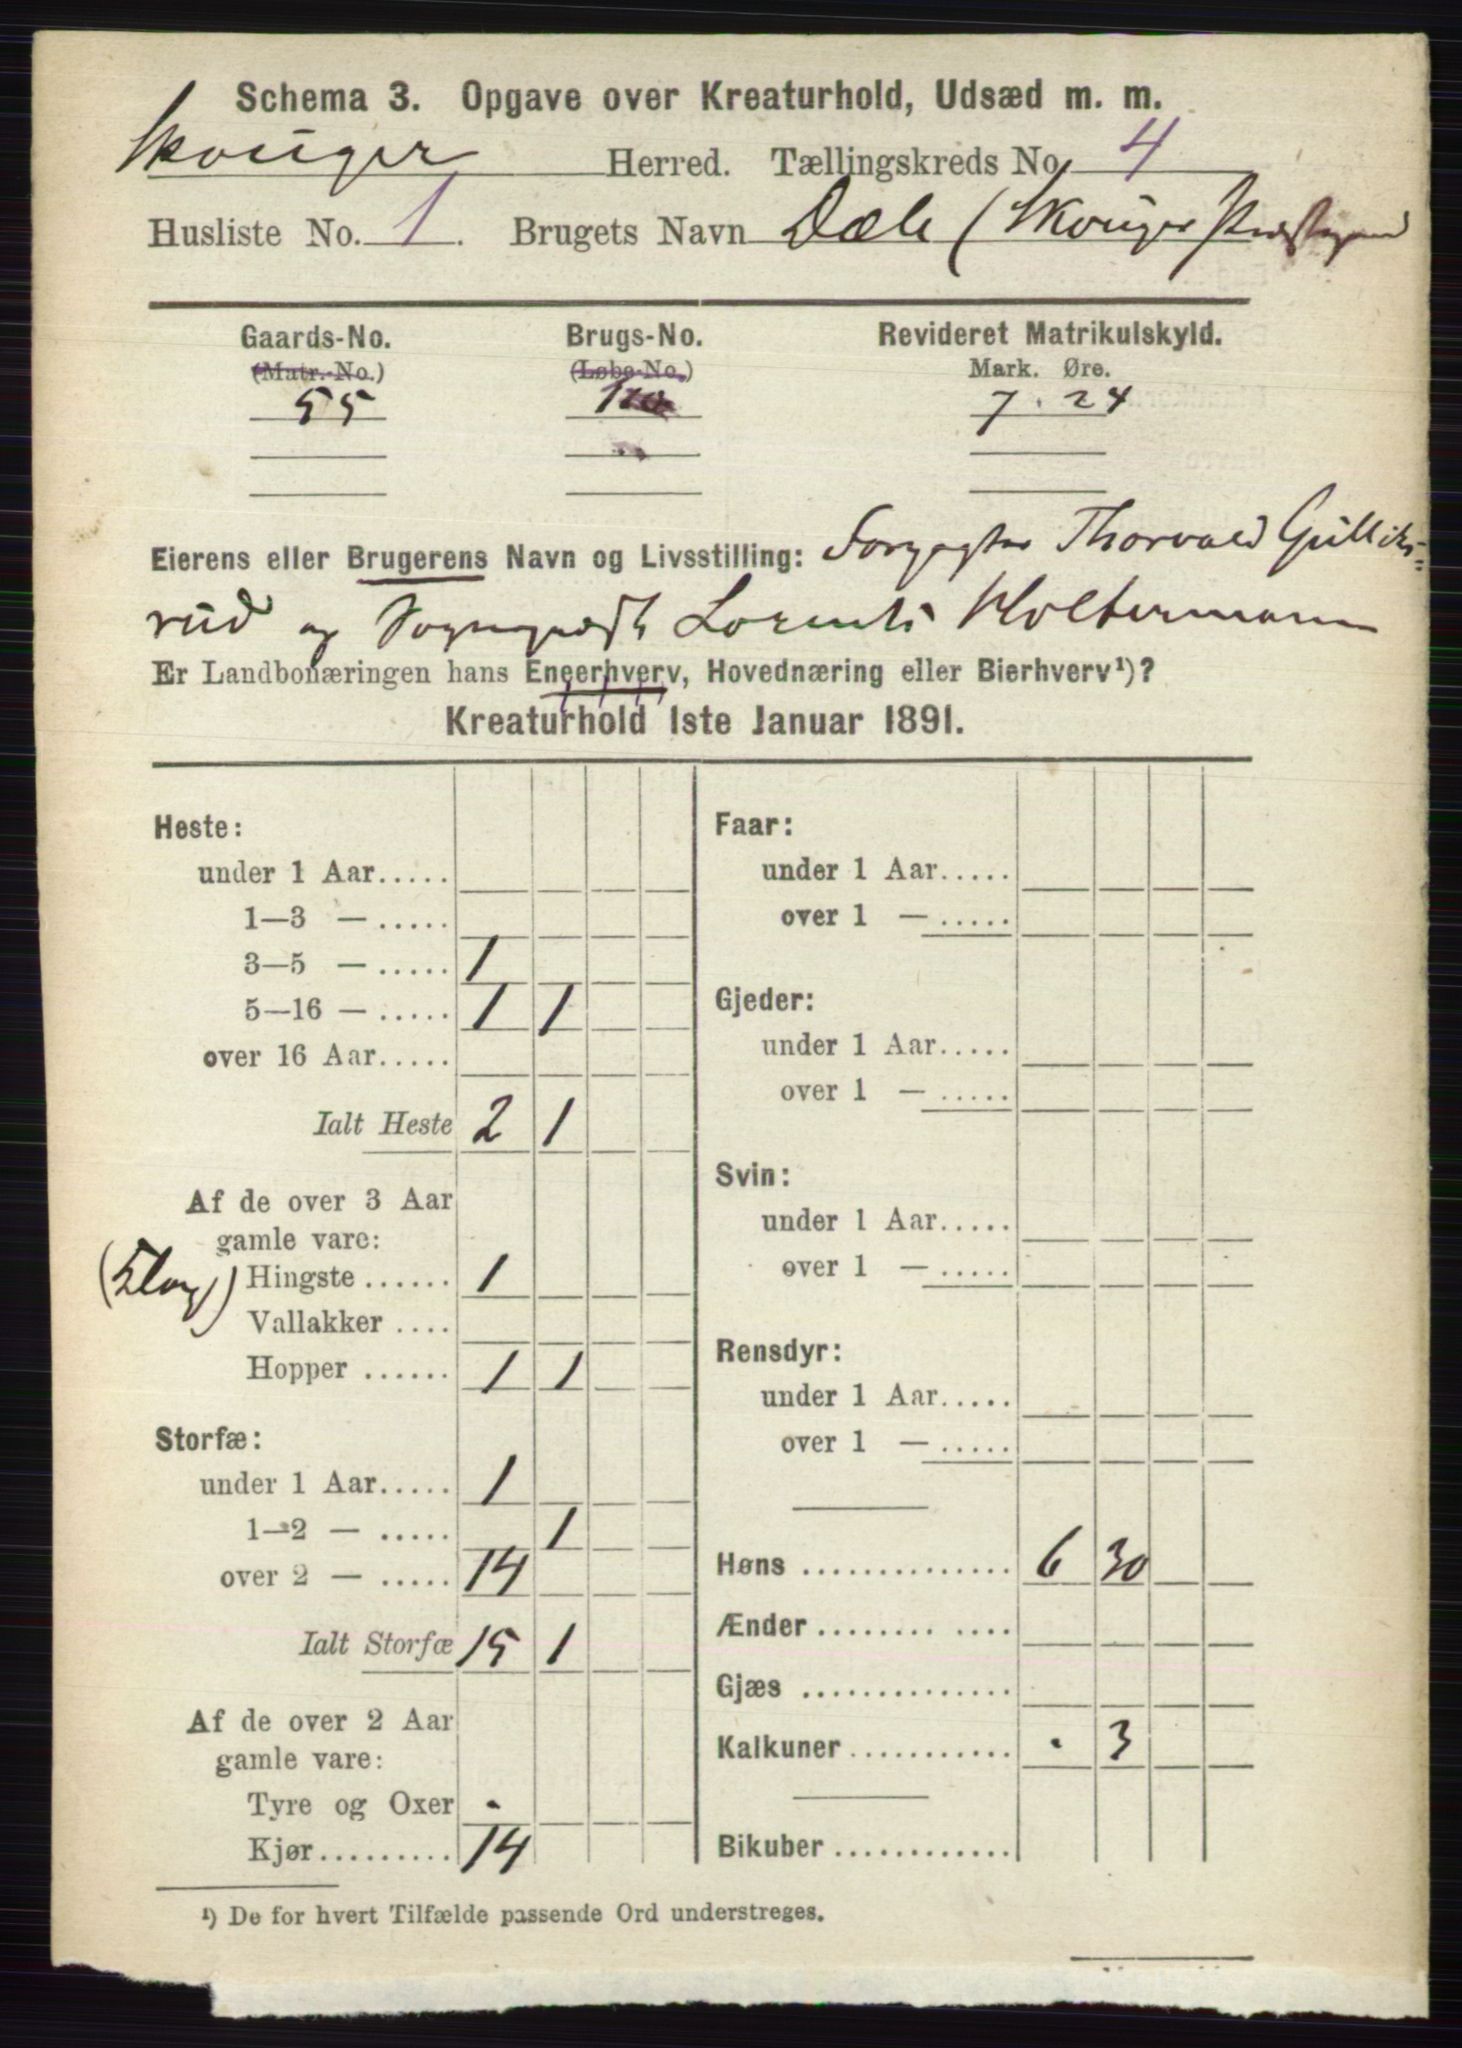 Schema 3. Opgave over Kreaturhold, Udsæd m. m.
Skouger Herred. Tællingskreds No. 4
Husliste No. 1. Brugets Navn Dæle (Skouger Præstegaard
Gaards-No. Brugs-No. Revideret Matrikulskyld.
(Matr.-No.) (Løbe-No.) Mark. Øre.
55 1 7 . 24
Eierens eller Brugerens Navn og Livsstilling: Forpagter Thorvald Gulliks=
rud og Sogneprest Lorents Holtermann
Er Landbonæringen hans Eneerhverv, Hovednæring eller Bierhverv¹)?
Kreaturhold 1ste Januar 1891.
Heste:
under 1 Aar.....
1—3 — .....
3—5 — ..... 1
5—16 — ..... 1 1
over 16 Aar.....
Ialt Heste 2 1
Af de over 3 Aar
gamle vare:
Hingste ...... 1
Vallakker ....
Hopper ...... 1 1
Storfæ:
under 1 Aar..... 1
1—2 — ..... 1
over 2 — ..... 14
Ialt Storfæ 15 1
Af de over 2 Aar
gamle vare:
Tyre og Oxer .
Kjør......... 14
Faar:
under 1 Aar.....
over 1 — .....
Gjeder:
under 1 Aar.....
over 1 — .....
Svin:
under 1 Aar.....
over 1 — .....
Rensdyr:
under 1 Aar.....
over 1 — .....
Høns .............. 6 30
Ænder ........ ....
Gjæs ..............
Kalkuner ........... . 3
Bikuber ............
¹) De for hvert Tilfælde passende Ord understreges.